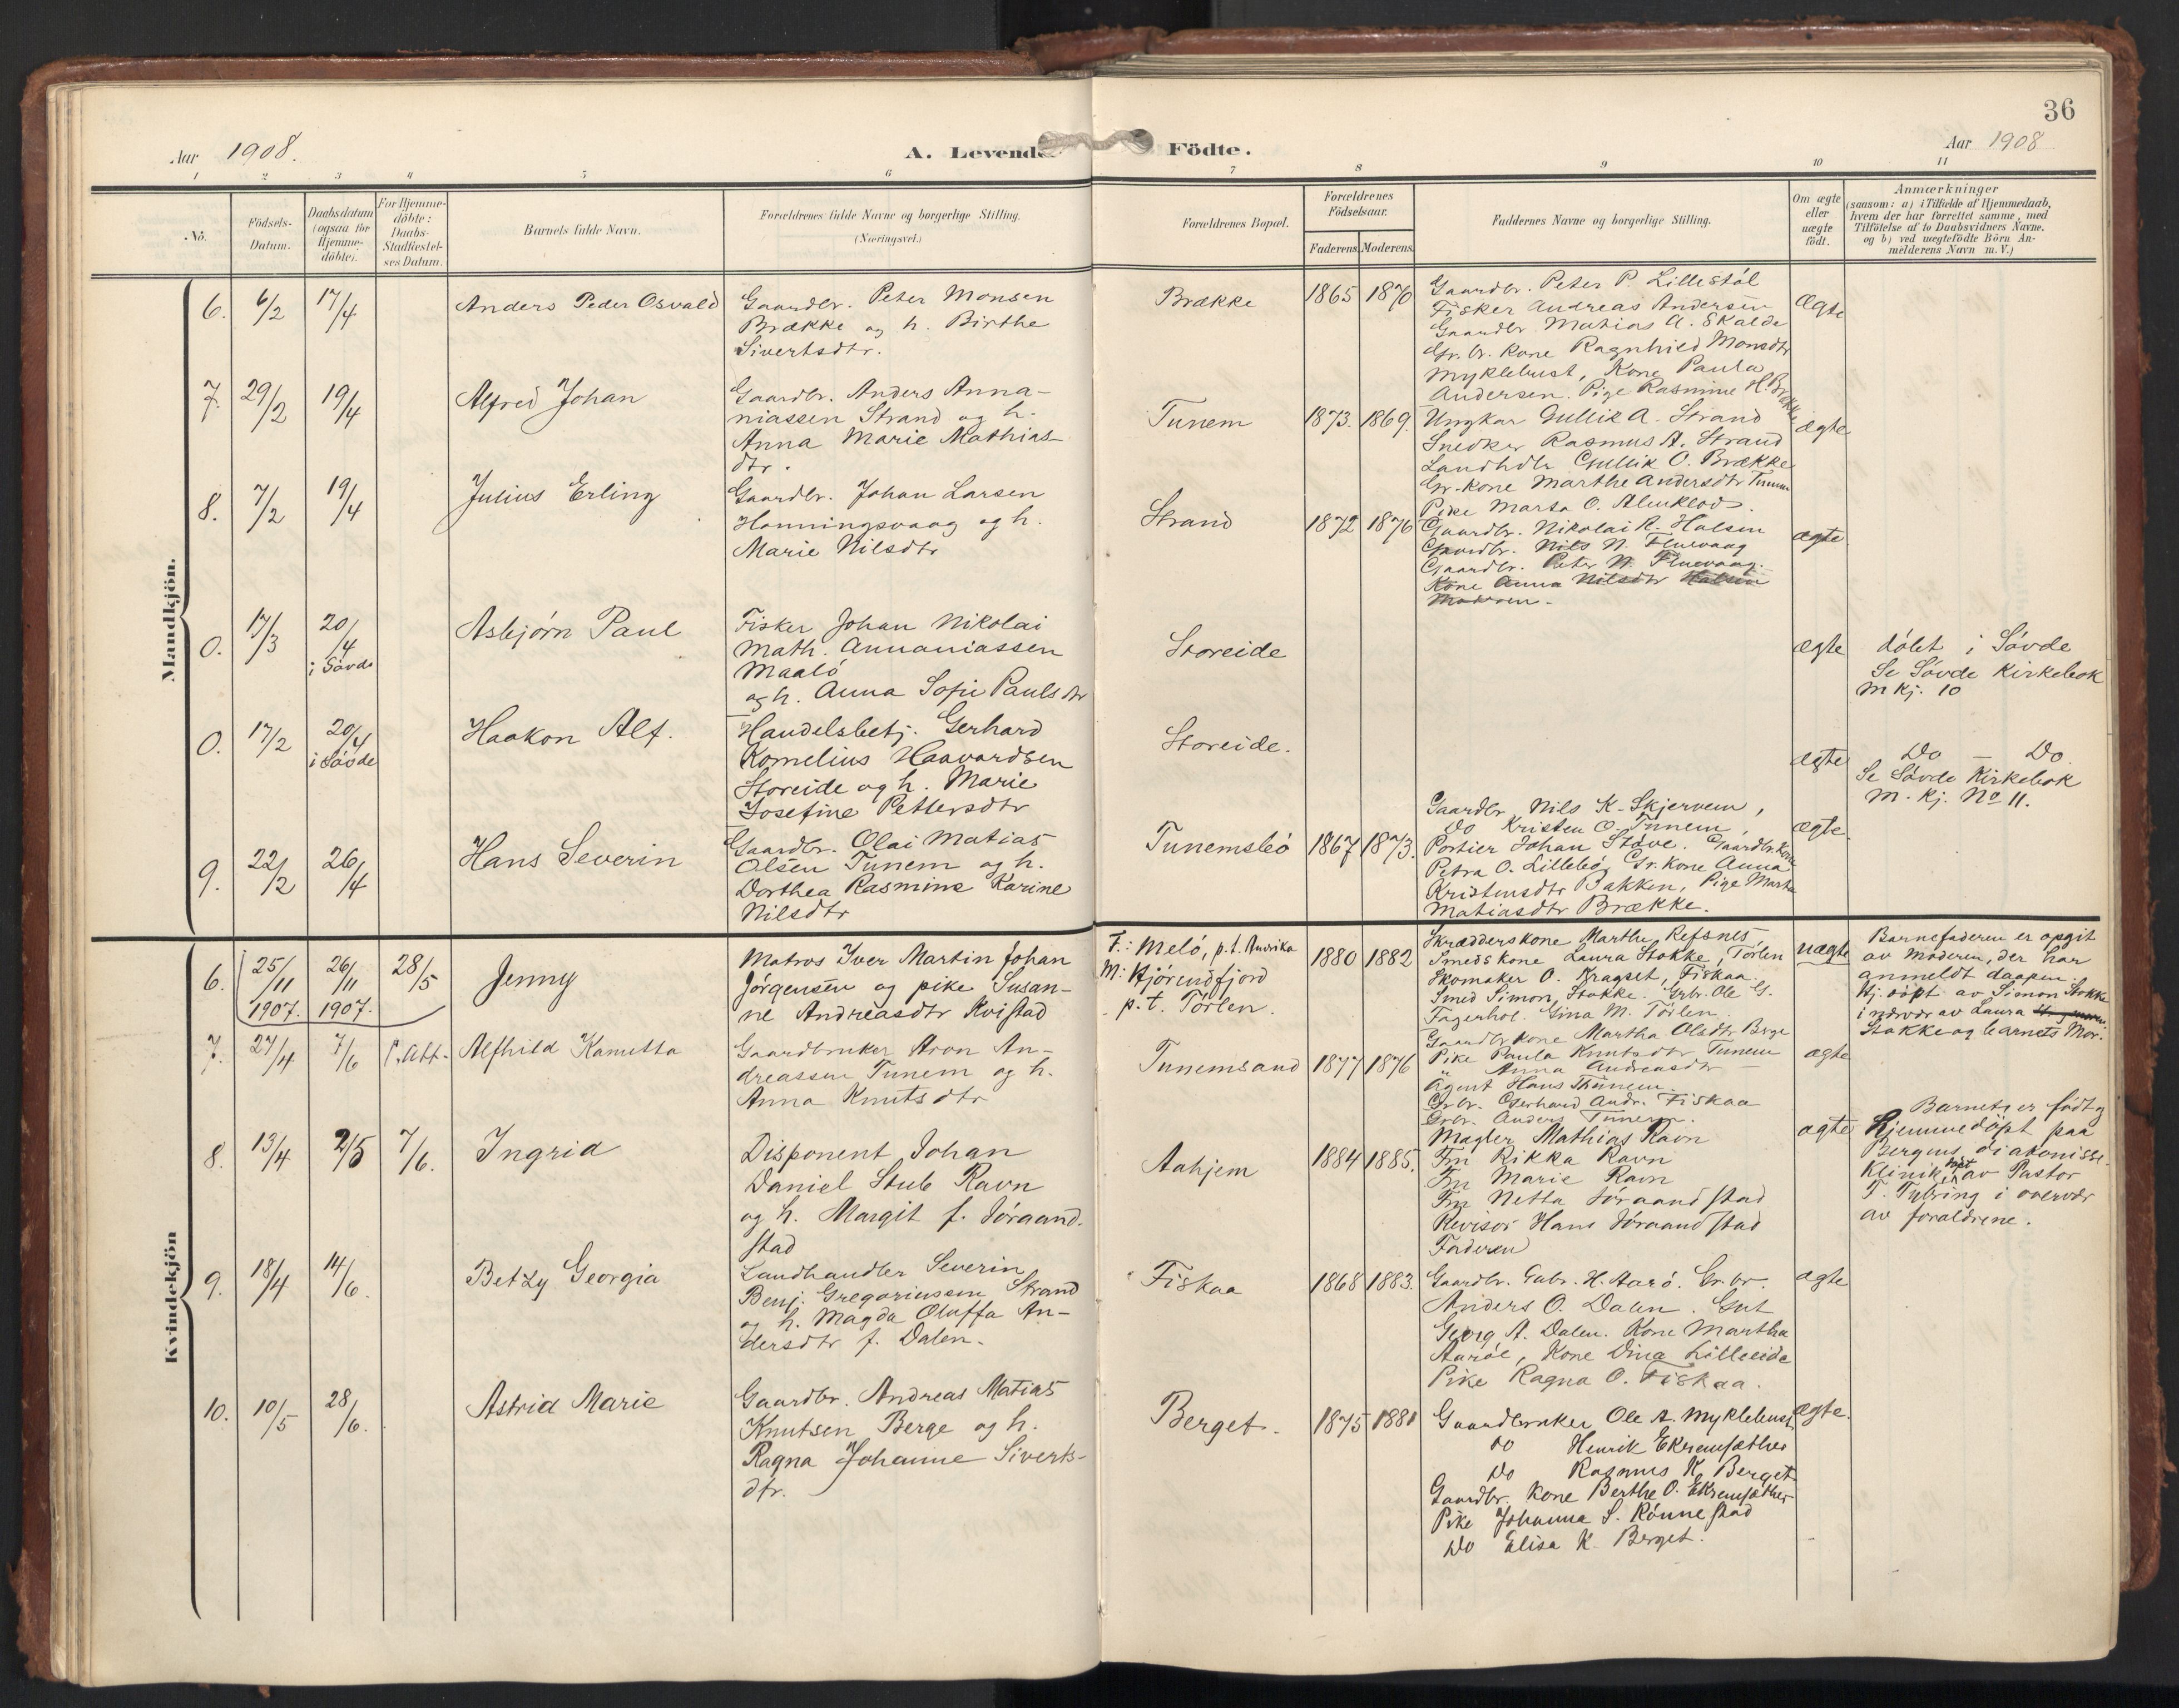 36
Aar 1908.
A. Levende
Födte.
Aar 1908
1 2 3 4 5 6 7 8 9 10 11
No.
Födsels-
Datum.
Daabsdatum
(ogsaa for
Hjemme-
döbte).
For Hjemme-
döbte:
Daabs-
Stadfæstel-
ses Datum.
Barnets fulde Navn.
Forældrenes fulde Navne og borgerlige Stilling.
(Næringsvei.)
Forældrenes Bopæl.
Forældrenes
Födselsaar.
Faderens. Moderens.
Faddernes Navne og borgerlige Stilling.
Om ægte
eller
uægte
födt.
Anmærkninger
(saasom: a) i Tilfælde af Hjemmedaab,
hvem der har forrettet samme, med
Tilföielse af to Daabsvidners Navne,
og b) ved uægtefödte Börn An-
melderens Navn m. V.)
Mandkjön.
6. 6/2 17/4
Anders Peder Osvald
Gaardbr. Peter Monsen
Brække og h. Birthe
Sivertsdtr.
Brække
1865 1870
Gaardbr. Peter P. Lillestöl
Fisker Andreas Andersen
Gaardbr. Matias A. Skalde
Gr. br. kone Ragnhild Monsdtr
Myklebust, Kone Paula
Andersen. Pige Rasmine H. Brække
Ægte
7. 29/2 19/4
Alfred Johan
Gaardbr. Anders Anna-
niassen Strand og h.
Anna Marie Mathias-
dtr.
Tunem
1873. 1869.
Ungkar Gullik A. Strand
Snedker Rasmus A. Strand
Landhdlr Gullik O. Brække
Gr. kone Marthe Andersdtr Tunem
Pike Marta O. Almklov.
ægte
8. 7/2 19/4
Julius Erling
Gaardbr. Johan Larsen
Honningsvaag og h.
Marie Nilsdtr
Strand
1872 1876
Gaardbr. Nikolai R. Halsen
Gaardbr. Nils N. Fluevaag
Gaardbr. Peter N. Fluevaag.
Kone Anna Nilsdtr
ægte
0. 17/3 20/4
i Sövde
Asbjörn Paul
Fisker Johan Nikolai
Math. Annaniassen
Maalö
og h. Anna Sofie Paulsdtr
Storeide
ægte
döbt i Sövde
Se Sövde Kirkebok
M Kj. 10
0. 17/2 20/4
i Sövde
Haakon Alf.
Handelsbetj. Gerhard
Kornelius Haavardsen
Storeide og h. Marie
Josefine Pettersdtr
Storeide.
ægte
Do — Do
Se Sövde Kirkebok
M. Kj. No 11.
9. 22/2 26/4
Hans Severin
Gaardbr. Olai Matias
Olsen Tunem og h.
Dorthea Rasmine Karine
Nilsdtr
Tunemsbö
1867 1873.
Gaardbr. Nils K. Skjervem,
Do Kristen O. Tunem,
Portier Johan Stöve. Gaardbr. Kone
Petra O. Lillebö, Gr. kone Anna
Kristensdtr Bakken, Pige Marta
Matiasdtr Brække.
ægte.
Kvindekjön
6. 25/11 1907. 26/11 1907. 28/5
Jenny
Matros Iver Martin Johan
Jörgensen og pike Susan-
ne Andreasdtr Kvistad
F.: Melö, p.t. Amerika
M: Hjörendfjord
p.t. Törlen.
1880 1882
Skrædderskone Marthe Refsnes
Smeds kone Laura Stokke, Törlen
Skomaker O. Kragset, Fiskaa.
Smed Simon Stokke. Grbr. Ole G.
Fagerhol. Gina M. Törlen.
uægte
Barnefaderen er opgit
av moderen, der har
anmeldt daapen.
Hj. döpt av Simon Stokke
i nærvær av Laura
Stokke og barnets Mor.
7. 27/4 7/6
Alfhild Kanutta
Gaardbruker Aron An-
dreassen Tunem og h.
Anna Knutsdtr
Tunemsand
1877 1876
Gaardbr kone Martha Olsdtr Berge
Pike Paula Knutsdtr Tunem
" Anna Andreasdtr —
Agent Hans Thunem.
Grbr. Gerhard Andr. Fiskaa
Grbr. Anders Tunem.
ægte
8. 13/4 2/5 7/6.
Ingrid
Disponent Johan
Daniel Stub Ravn
og h. Margit f. Jöraand-
stad
Aahjem
1884 1885.
Mægler Mathias Ravn
Fru Rikka Ravn
Frn Marie Ravn
Frn Netta Jöraandstad
Revisor Hans Jöraandstad
Faderen
ægte
Barnet er födt og
hjemmedöpt paa
Bergens diakonisse-
klinik döpt av Pastor
T. Tybring i overvær
av forældrene.
9. 18/4 14/6.
Betzy Georgia
Landhandler Severin
Benj. Gregoriussen Strand
og h. Magda Oluffa An-
dersdtr f. Dalen.
Fiskaa
1868 1883.
Gaardbr. Gabr. H. Aarö. Gr. br.
Anders O. Dalen. Gut
Georg A. Dalen. Kone Martha
Aaröe, Kone Dina Lilleeide
Pike Ragna O. Fiskaa.
ægte
10. 10/5 28/6.
Astrid Marie
Gaardbr. Andreas Matias
Knutsen Berge og h.
Ragna Johanne Siverts-
dtr.
Berget.
1875 1881
Gaardbruker Ole A. Myklebust
Do Henrik Ekremsæther
Do Rasmus K. Berget.
Gaardbr. kone Berthe O. Ekremsæther
Pike Johanna S. Rönnestad
Do Elisa K. Berget.
ægte.